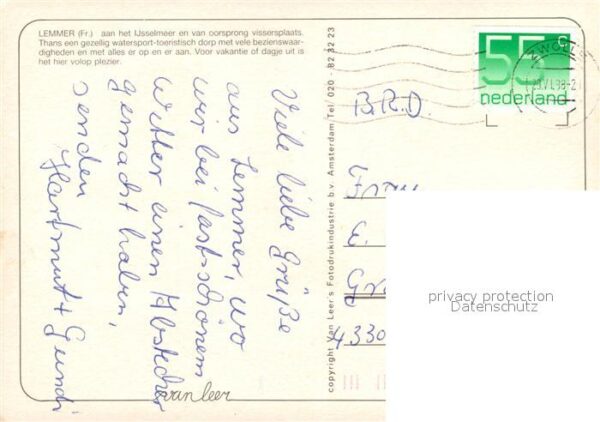 LEMMER (Fr.) aan het IJsselmeer en van oorsprong vissersplaats.
Thans een gezellig watersport-toeristisch dorp met vele bezienswaar-
digheden en met alles er op en er aan. Voor vakantie of dagje uit is
het hier volop plezier.
Viele liebe Grüße
aus Lemmer, wo
wir bei fast schönem
Wetter einen Abstecher
gemacht haben,
senden
Hartmut + Gundi
van leer
copyright Van Leer's Fotodrukindustrie b.v. Amsterdam Tel. 020 - 82 32 23
55 c
nederland
ZWOLLE
B.R.D.
Frau
E.
4330
privacy protection
Datenschutz